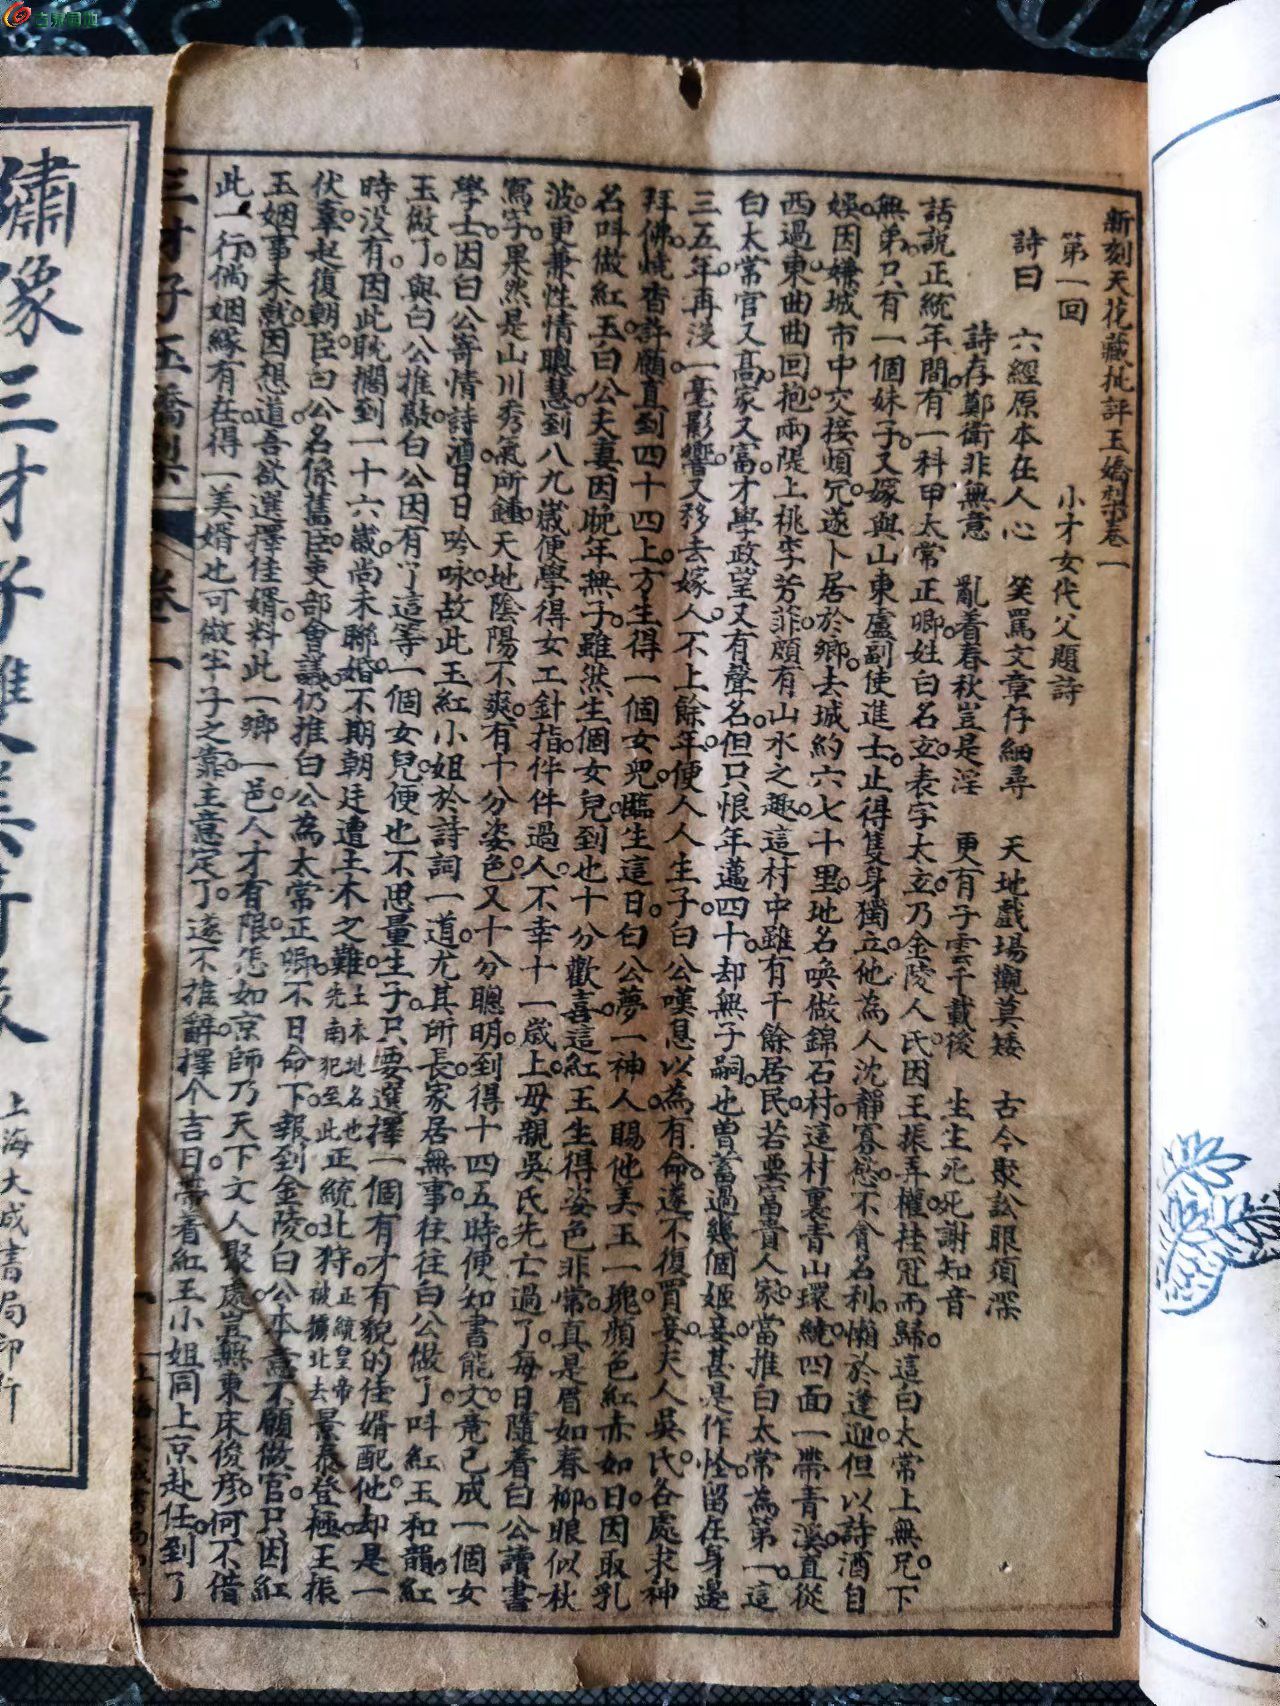 新刻天花藏批評玉嬌梨卷一
第一回 小才女代父題詩
詩曰 六經原本在人心 笑罵文章仔細尋 天地戲場觀莫矮 古今聚訟眼須深
詩存鄭衛非無意 亂着春秋豈是淫 更有子雲千載後 生生死死謝知音
話說正統年間有一科甲太常正卿姓白名玄表字太玄乃金陵人氏因王振弄權挂冠而歸這白太常上無兄下
無弟只有一個妹子又嫁與山東盧副使進士止得隻身獨立他為人沈靜寡慾不貪名利懶於逢迎但以詩酒自
娛因嫌城市中交接煩冗遂卜居於鄉去城約六七十里地名喚做錦石村這村裏青山環繞四面一帶青溪直從
西過東曲曲回抱兩隄上桃李芳菲頗有山水之趣這村中雖有千餘居民若要富貴人家當推白太常為第一這
白太常官又高家又富才學政望又有聲名但只恨年邁四十却無子嗣也曾蓄過幾個姬妾甚是作怪留在身邊
三五年再沒一毫影響又移去嫁人不上餘年便人人生子白公嘆息以為有命遂不復買妾夫人吳氏各處求神
拜佛燒香許願直到四十四上方生得一個女兒臨生這日白公夢一神人賜他美玉一塊顏色紅赤如日因取乳
名呌做紅玉白公夫妻因晚年無子雖然生個女兒到也十分歡喜這紅玉生得姿色非常真是眉如春柳眼似秋
波更兼性情聰慧到八九歲便學得女工針指件件過人不幸十一歲上母親吳氏先亡過了每日隨着白公讀書
寫字果然是山川秀氣所鍾天地陰陽不爽有十分姿色又十分聰明到得十四五時便知書能文竟已成一個女
學士因白公寄情詩酒日日吟咏故此玉紅小姐於詩詞一道尤其所長家居無事往往白公做了呌紅玉和韻紅
玉做了與白公推敲白公因有了這等一個女兒便也不思量生子只要選擇一個有才有貌的佳婿配他却是一
時沒有因此耽擱到一十六歲尚未聯婚不期朝廷遭土木之難土木地名也先南犯至此正統北狩正統皇帝被擄北去景泰登極王振
伏辜起復朝臣白公名係舊臣吏部會議仍推白公為太常正卿不日命下報到金陵白公本意不願做官只因紅
玉姻事未就因想道吾欲選擇佳婿料此一鄉一邑人才有限怎如京師乃天下文人聚處豈無東床俊彥何不借
此一行倘姻緣有在得一美婿也可做半子之靠主意定了遂不推辭擇个吉日帶着紅玉小姐同上京赴任到了
三才子玉嬌梨 卷一 一
繡像三才子雙美奇緣
上海大成書局印行